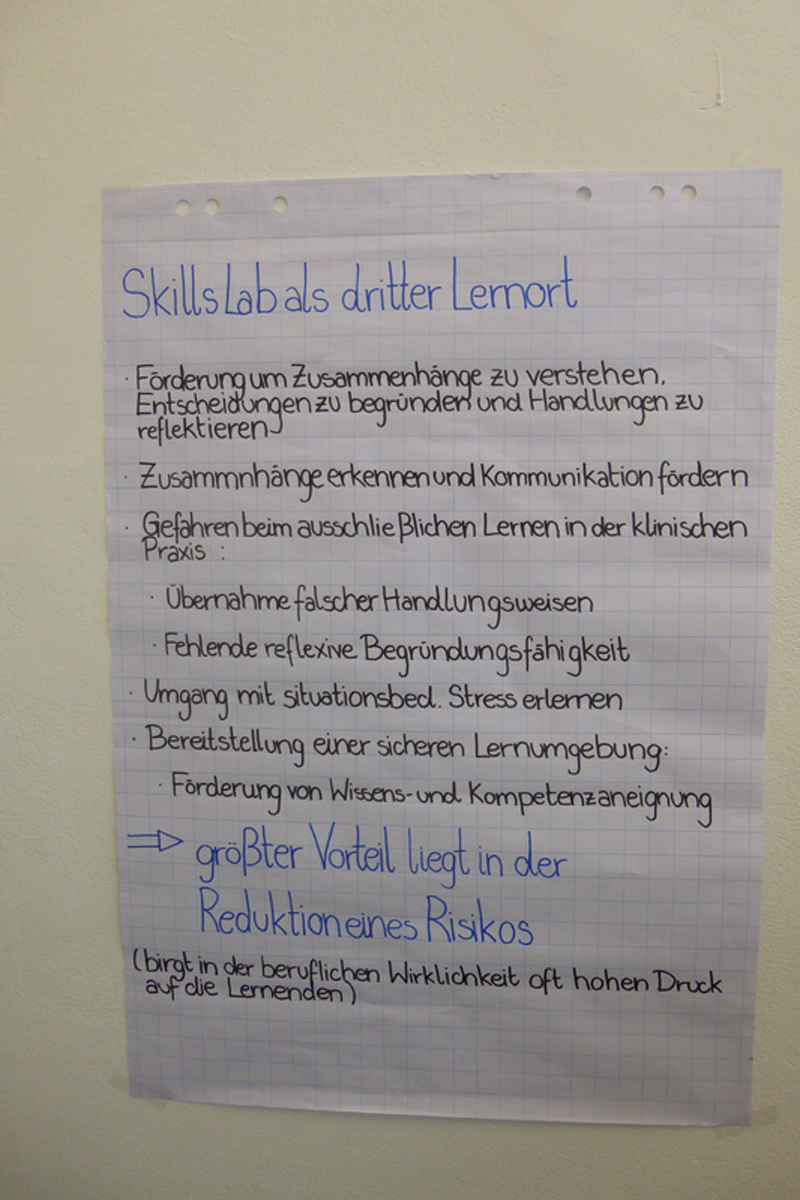 Skills Lab als dritter Lernort
· Förderung um Zusammenhänge zu verstehen,
Entscheidungen zu begründen und Handlungen zu
reflektieren
· Zusammnhänge erkennen und Kommunikation fördern
· Gefahren beim ausschließlichen Lernen in der klinischen
Praxis :
· Übernahme falscher Handlungsweisen
· Fehlende reflexive Begründungsfähigkeit
· Umgang mit situationsbed. Stress erlernen
· Bereitstellung einer sicheren Lernumgebung:
· Förderung von Wissens- und Kompetenzaneignung
⇒ größter Vorteil liegt in der
Reduktion eines Risikos
(birgt in der beruflichen Wirklichkeit oft hohen Druck
auf die Lernenden)